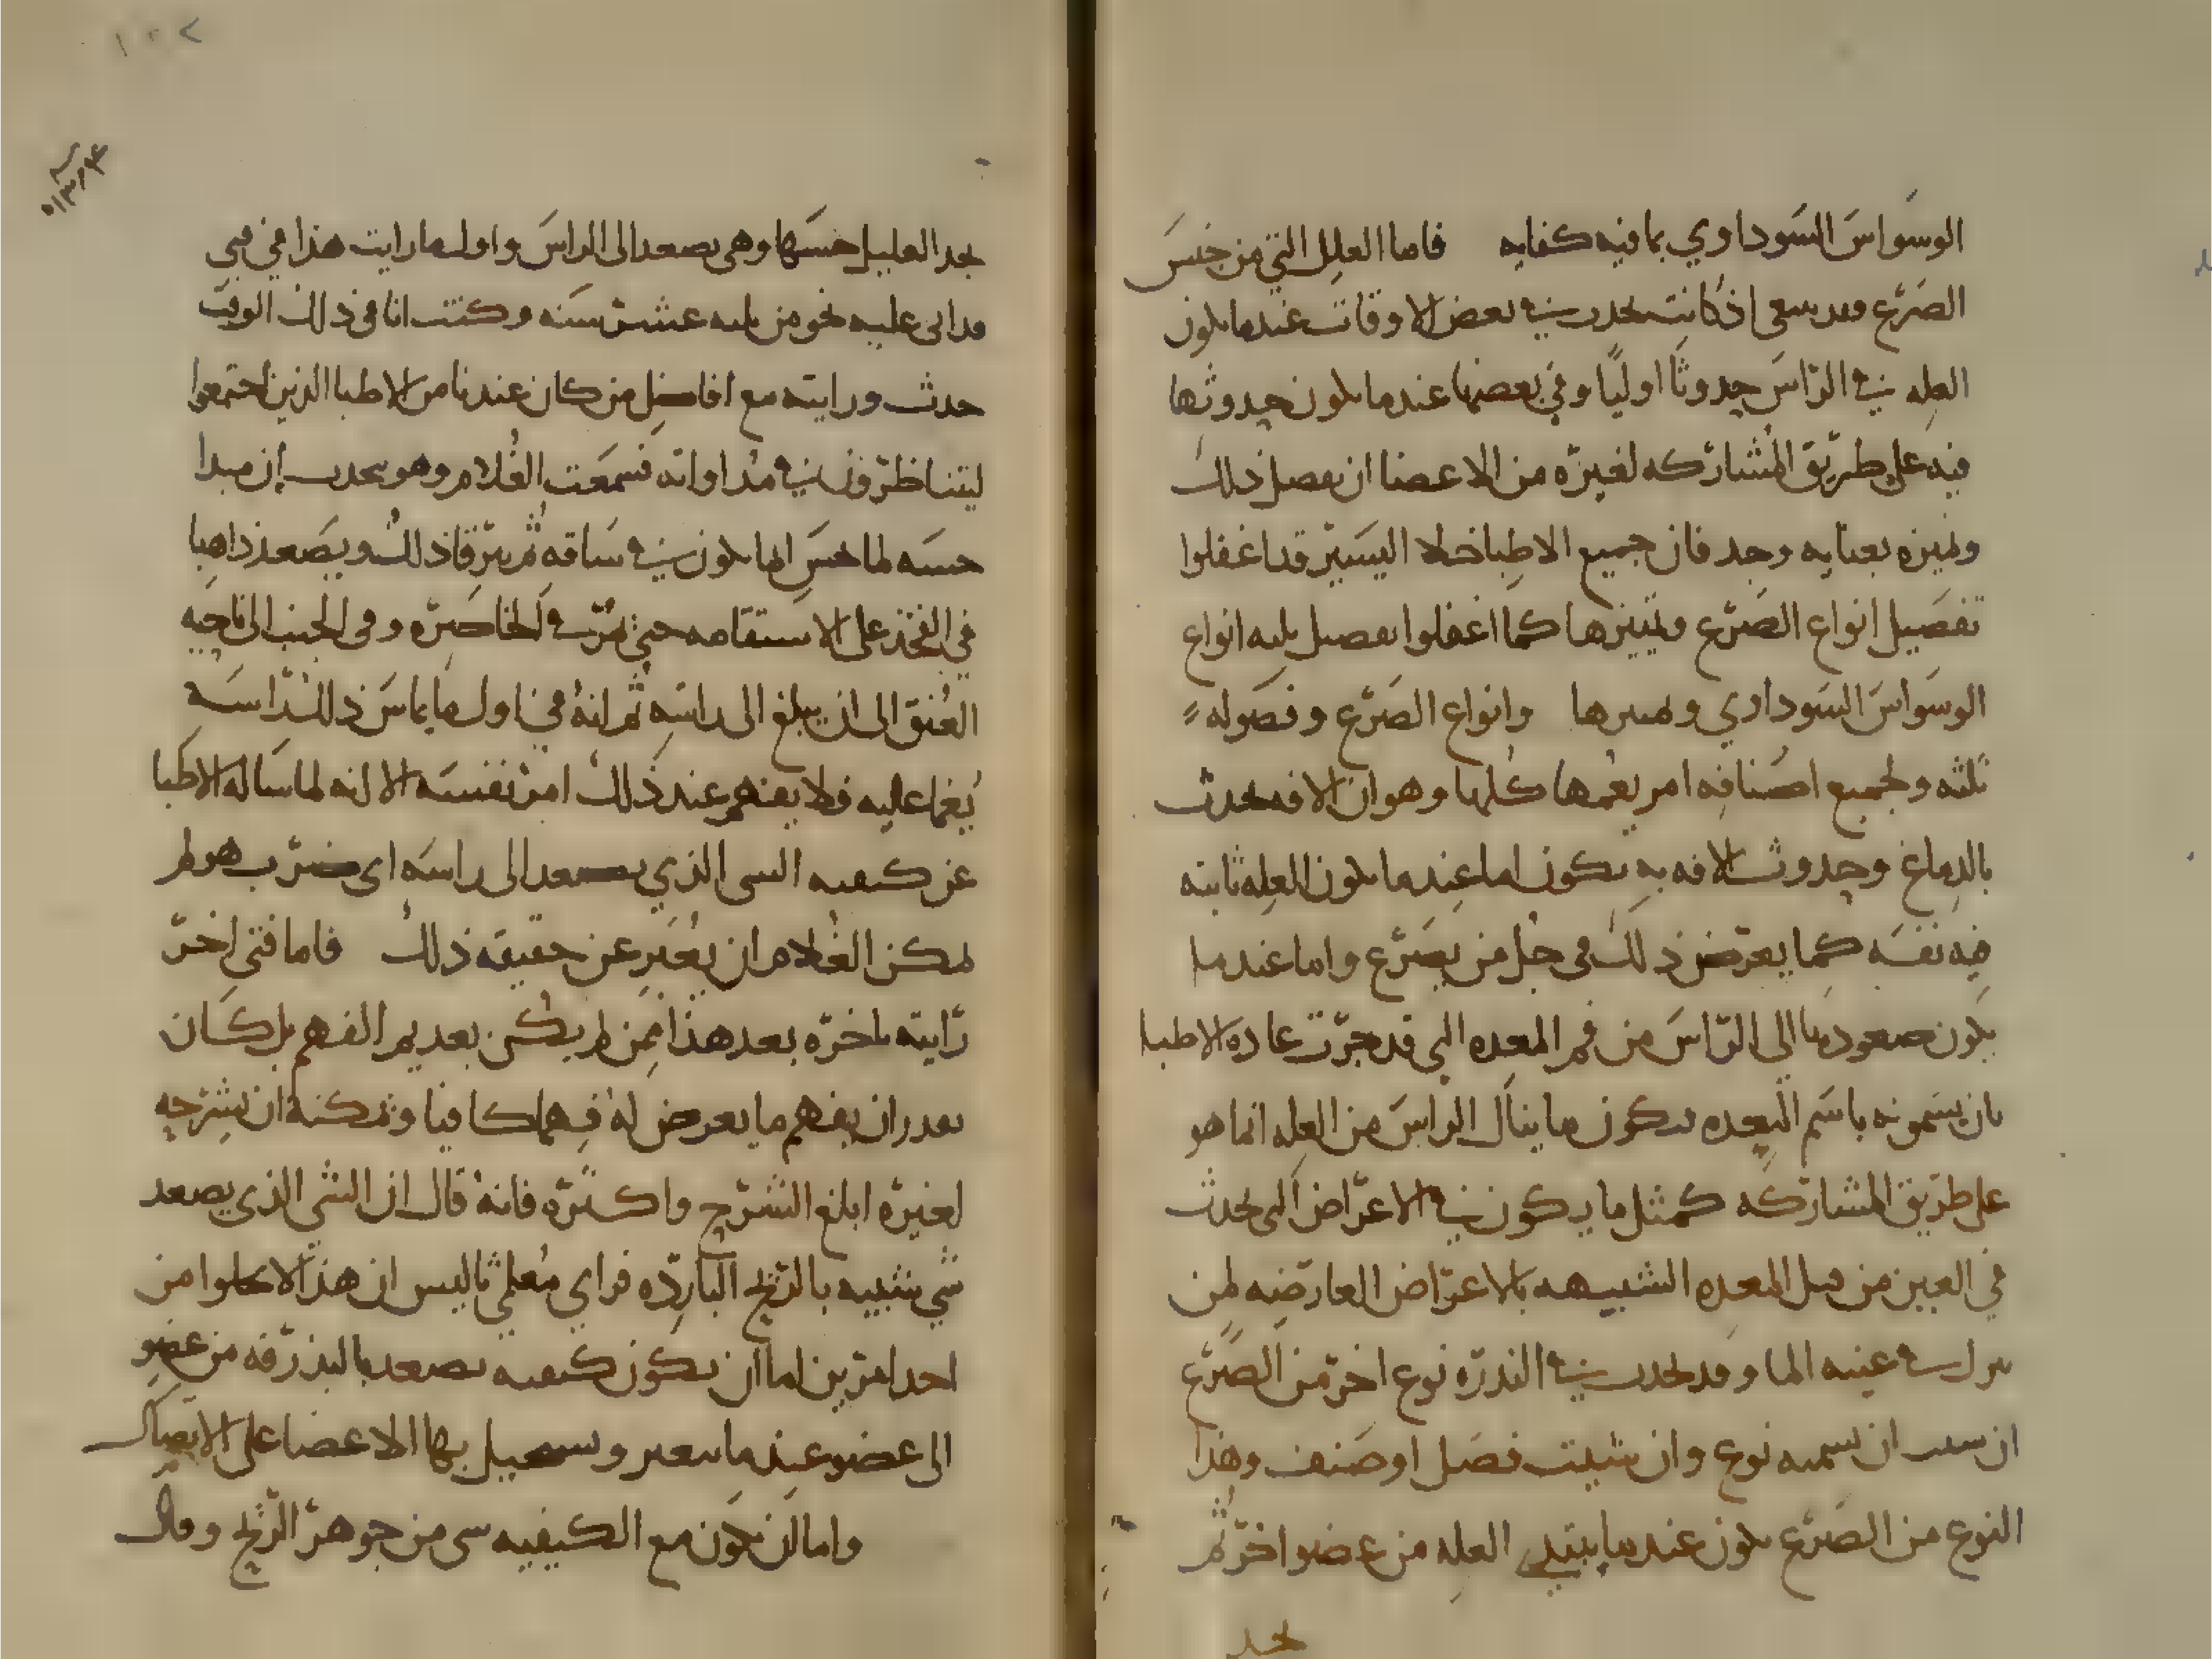 الوسواس السوداوي بما فيه كفايه فاما العلل التي من جنس
الصرع فقد ينبغي اذ كانت تحدث في بعض الاوقات عندما يكون
العله في الراس حدوثا اوليا وفي بعضها عندما يكون حدوثها
فيه على طريق المشاركه لغيره من الاعضا ان نفصل ذلك
ونميزه بعنايه وجد فان جميع الاطبا خلا اليسير قد اغفلوا
تفصيل انواع الصرع وتمييزها كما اغفلوا تفصيل ثلثه انواع
الوسواس السوداوي وتمييزها وانواع الصرع وفصوله
ثلثه ولجميع اصنافه امر يعمها كلها وهو ان الافه تحدث
بالدماغ وحدوث الافه به يكون اما عندما يكون العله ثابته
فيه نفسه كما يعرض ذلك في جل من يصرع واما عندما
يكون صعودها الى الراس من فم المعده التي قد جرت عاده الاطبا
بان يسمونه باسم المعده فيكون ما ينال الراس من العله انما هو
على طريق المشاركه كمثل ما يكون في الاعراض التي تحدث
في العين من قبل المعده الشبيهه بالاعراض العارضه لمن
ينزل في عينيه الما وقد يحدث في الندره نوع اخر من الصرع
ان شيت ان تسميه نوع وان شيت فصل او صنف وهذا
النوع من الصرع يكون عندما يبتدي العله من عضو اخر ثم
يجد
يجد العليل حسها وهي تصعد الى الراس واول ما رايت هذا في فتى
قد اتى عليه نحو من ثلثه عشر سنه وكنت انا في ذلك الوقت
حدث ورايته مع افاضل من كان عندنا من الاطبا الذين اجتمعوا
ليتناظرون في مداواته فسمعت الغلام وهو يحدث ان مبدا
حسه لما يحس انما يكون في ساقه ثم يترقا ذلك ويصعد ذاهبا
في الفخذ على الاستقامه حتى يمر في الخاصره وفي الجنب الى ناحيه
العنق الى ان يبلغ الى راسه ثم انه في اول ما يماس ذلك راسه
يغما عليه فلا يفهم عند ذلك امر نفسه الا انه لما ساله الاطبا
عن كيفيه الشي الذي يصعد الى راسه اي ضرب هو لم
يمكن الغلام ان يعبر عن حقيقه ذلك فاما فتى اخر
رايته باخره بعد هذا ممن لم يكن بعديم الفهم بل كان
يقدر ان يفهم ما يعرض له فهما كافيا ويمكنه ان يشرحه
لغيره ابلغ الشرح واكثره فانه قال ان الشي الذي يصعد
شي شبيه بالريح البارده فراي معلمي فاليس ان هذا لا يخلوا من
احد امرين اما ان يكون كيفيه تصعد بالبذرقه من عضو
الى عضو عندما يتغير ويستحيل بها الاعضا على الاتصال
واما ان يكون مع الكيفيه شي من جوهر الريح وقال